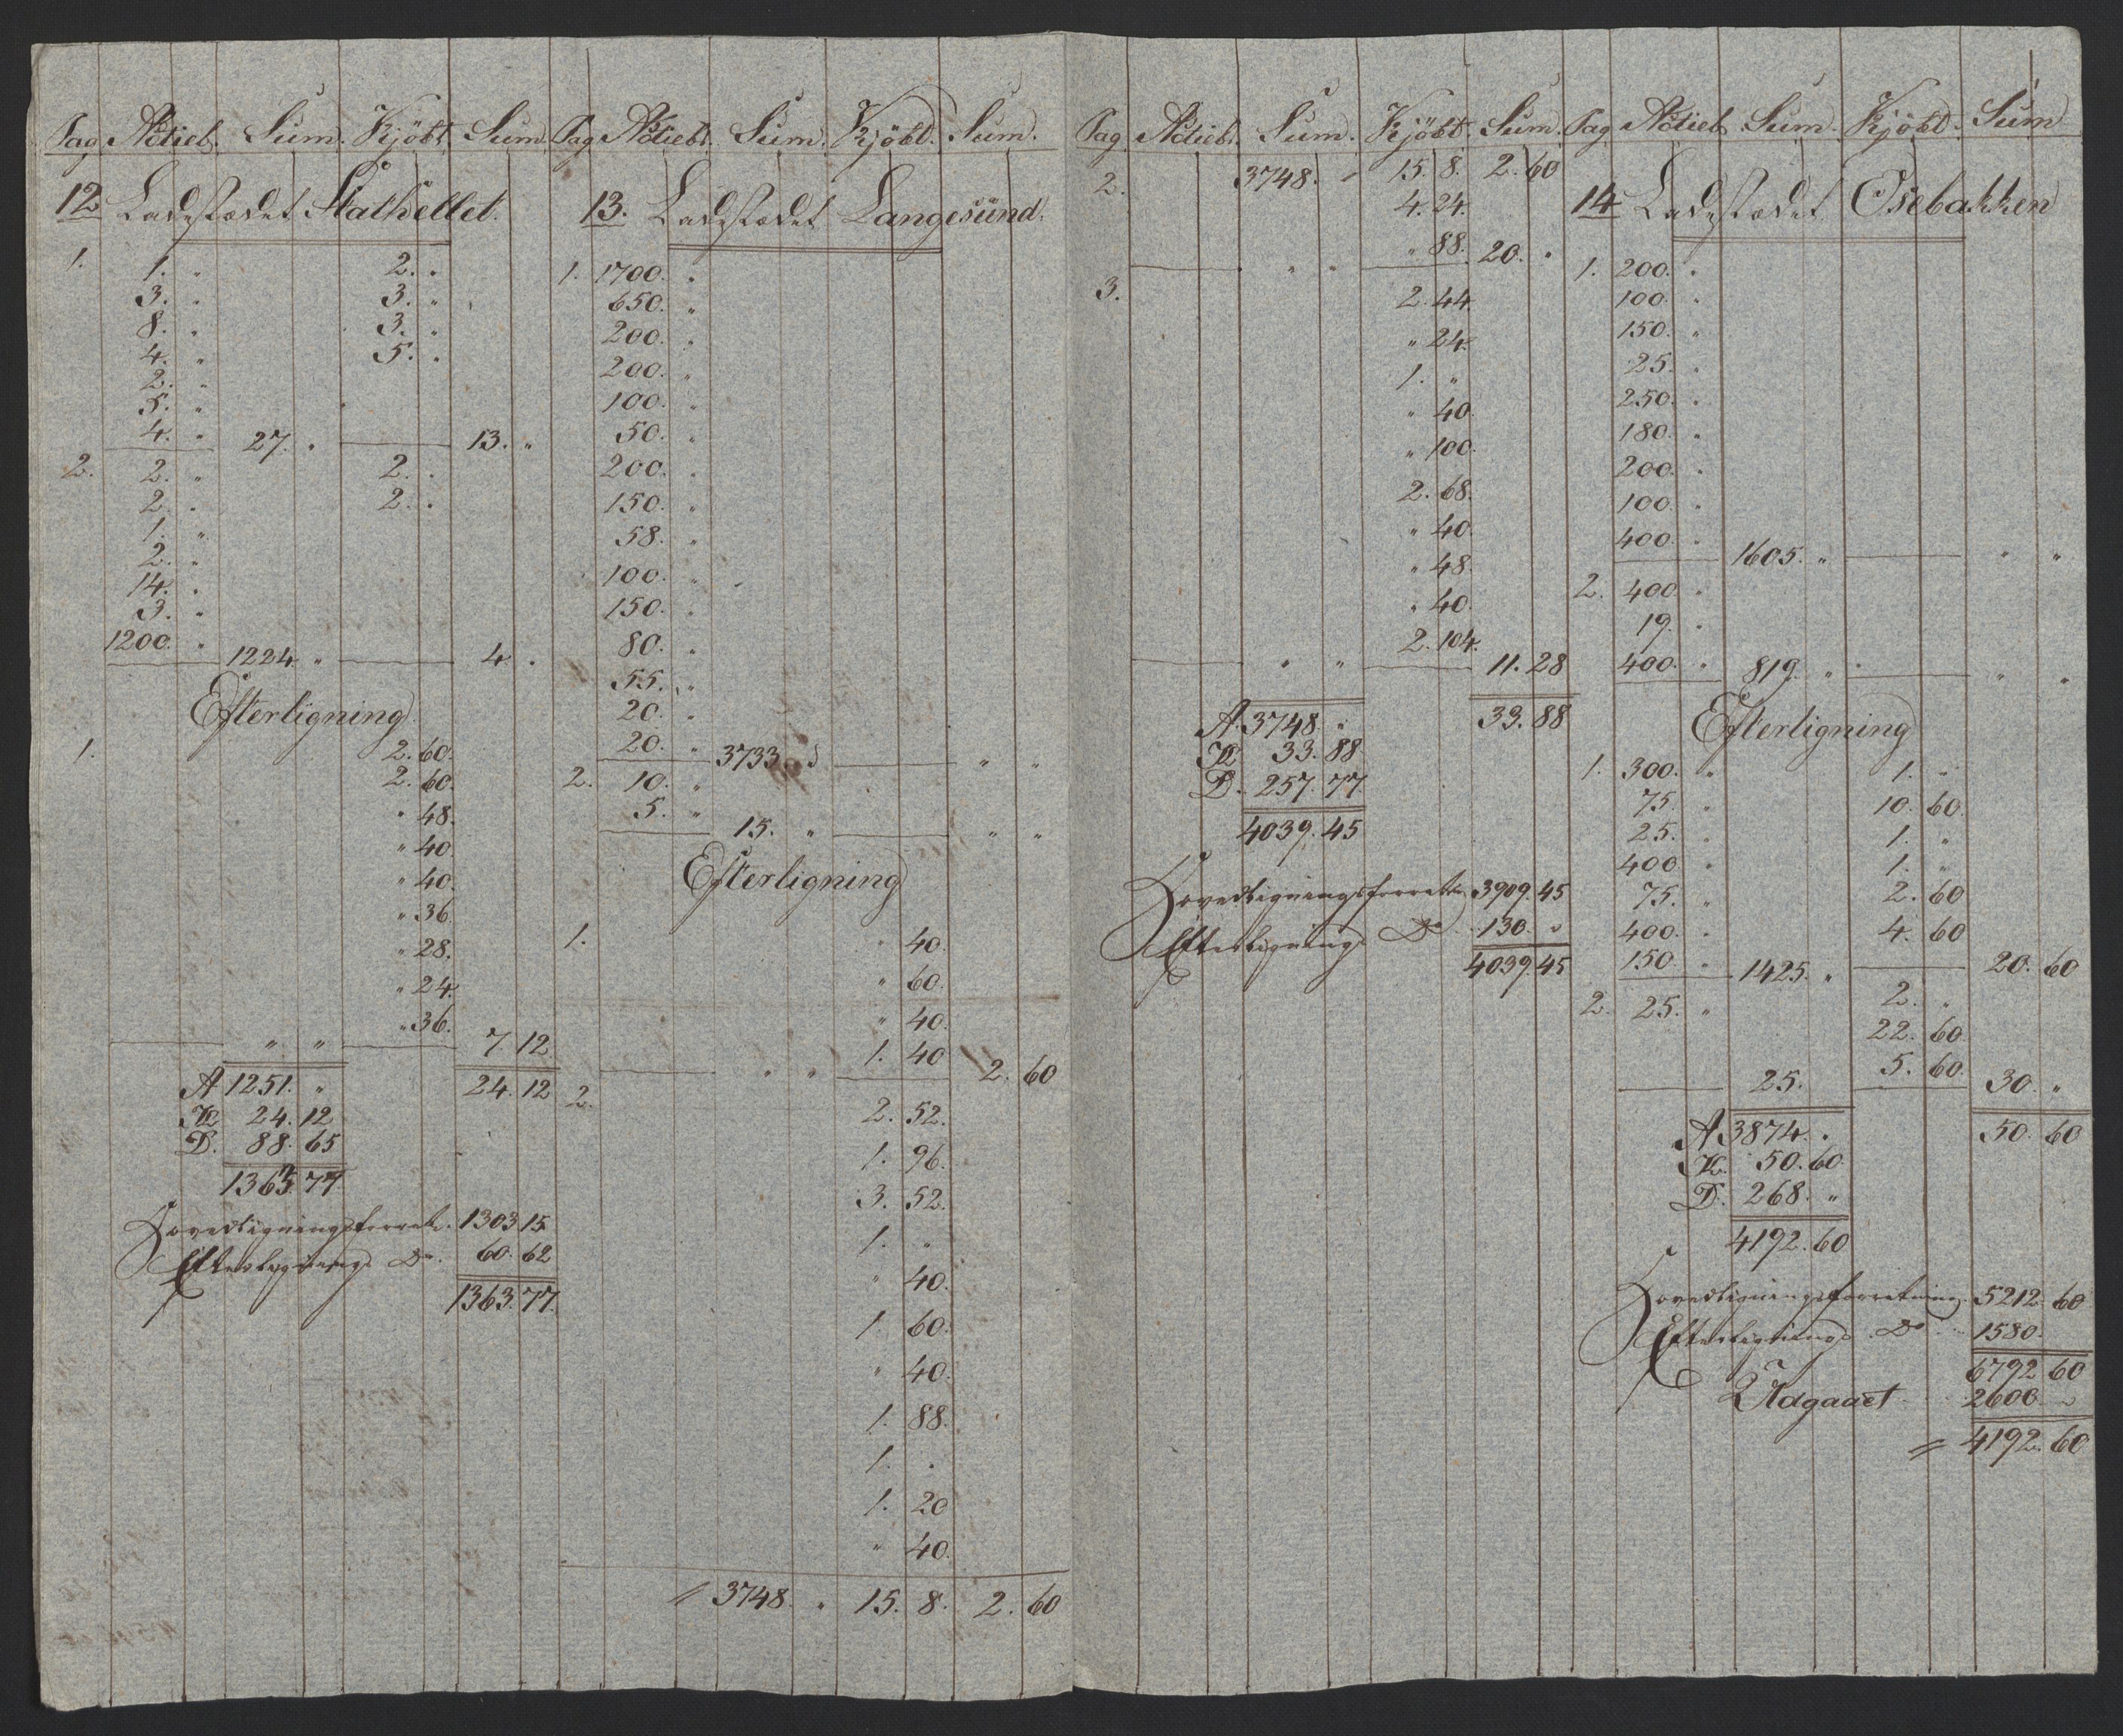 Pag. Actieb. Sum. Kjöbt. Sum.
12 Ladestædet Stathellet.
1. 1. " 2. "
3. " 3. "
8. " 3. "
4. " 5. "
2. "
5. "
4. " 27. " 13. "
2. 2. " 2. "
2. " 2. "
1. "
2. "
14. "
3. "
1200. " 1224. " 4. "
Efterligning
1. 2. 60.
2. 60.
" 48.
" 40.
" 40.
" 36.
" 28.
" 24.
" 36.
" " 7. 12
A 1251. " 24. 12
K 24. 12
D. 88. 65
1363. 77
Hovedligningsforretn. 1303 15
Efterlignings Do. 60. 62
1363. 77.
Pag. Actieb. Sum. Kjöbt. Sum.
13. Ladestædet Langesund.
1. 1700. "
650. "
200. "
200. "
100. "
50. "
200. "
150. "
58. "
100. "
150. "
80. "
55. "
20. "
20. " 3733 " " "
2. 10. "
5. " 15. " " "
Efterligning
1. " 40.
" 60.
" 40.
1. 40
" " 2. 60
2. 2. 52.
1. 96.
3. 52.
1. "
" 40.
1. 60.
" 40.
1. 88.
1. "
1. 20
" 40.
= 3748. " 15. 8. 2. 60
Pag. Actieb. Sum. Kjöbt. Sum.
2. 3748. " 15. 8. 2. 60
4. 24.
" 88. 20. "
" "
3. 2. 44.
" 24.
1. "
" 40.
" 100.
2. 68.
" 40.
" 48.
" 40.
2. 104.
" " 11. 28
A. 3748. " 33. 88
K 33. 88
D. 257. 77
4039. 45
Hovedligningsforretn. 3909. 45
Efterlignings Do 130. "
4039 45
Pag. Actieb. Sum. Kjöbt. Sum
14 Ladestædet Osebakken
1. 200. "
100. "
150. "
25. "
250. "
180. "
200. "
100. "
400. " 1605. " " "
2. 400. "
19. "
400. " 819. " " "
Efterligning
1. 300. " 1. "
75. " 10. 60.
25. " 1. "
400 " 1. "
75. " 2. 60
400. " 4. 60
150. " 1425. " 20. 60
2. 25. " 2. "
22. 60.
5. 60.
25. 30. "
A 3874. " 50. 60
K. 50. 60.
D. 268. "
4192. 60
Hovedligningsforretning. 5212. 60
Efterlignings Do 1580.
6792 60
Udgaaet 2600 "
= 4192. 60